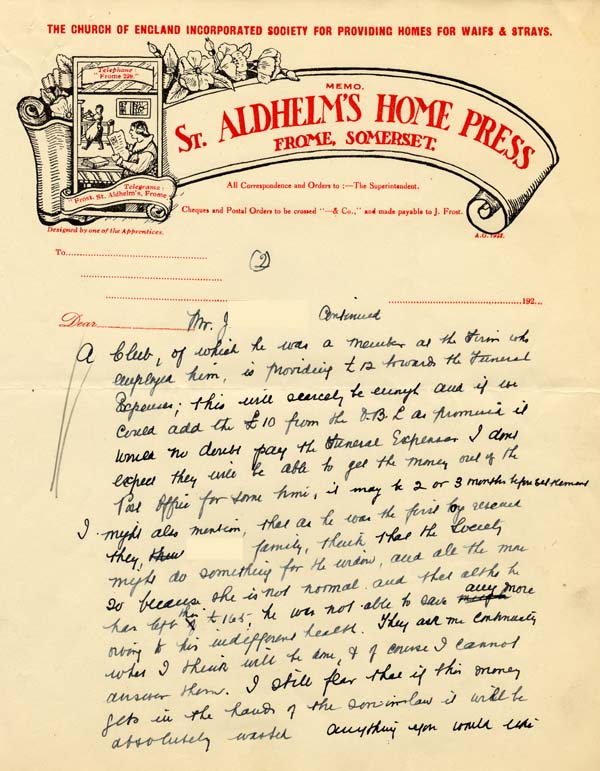 THE CHURCH OF ENGLAND INCORPORATED SOCIETY FOR PROVIDING HOMES FOR WAIFS & STRAYS.
Telephone:
"Frome 229."
MEMO.
ST. ALDHELM'S HOME PRESS
FROME, SOMERSET.
Telegrams:
"Frost, St. Aldhelm's, Frome
All Correspondence and Orders to :—The Superintendent.
Cheques and Postal Orders to be crossed "—& Co.," and made payable to J. Frost.
Designed by one of the Apprentices.
A.G. 1925.
To
(2)
192...
Dear
Mr. J Continued
A Club, of which he was a member at the Firm who
employed him, is providing £12 towards the Funeral
Expenses; this will scarcely be enough and if we
could add the £10 from the O.B.L as promised it
would no doubt pay the Funeral Expenses I dont
expect they will be able to get the money out of the
Post Office for some time, it may be 2 or 3 months before settlement
I might also mention, that as he was the first boy rescued
they, family, think that the Society
might do something for the widow, and all the more
so because she is not normal and that altho he
has left this £165, he was not able to save any more
owing to his indifferent health. They ask me continually
what I think will be done, & of course I cannot
answer them. I still fear that if this money
gets in the hands of the son-in-law it will be
absolutely wasted anything you would like